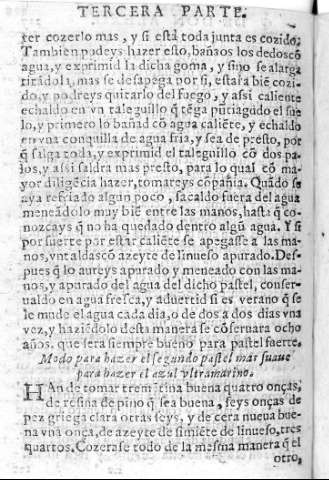 TERCERA PARTE.
ter cozerlo mas, y si està toda junta es cozido.
Tambien podeys hazer esto, bañaos los dedos cõ
agua, y exprimid la dicha goma, y sino se alarga
tirãdola, mas se desapega por si, estara biẽ cozi-
do, y podreys quitarlo del fuego, y assi caliente
echaldo en vn taleguillo q̃ tẽga pũtiagudo el sue
lo, y primero lo bañad cõ agua caliẽte, y echaldo
en vna conquilla de agua fria, y sea de presto, por
q̃ salga toda, y exprimid el taleguillo cõ dos pa-
los, y assi saldra mas presto, para lo qual cõ ma-
yor diligẽcia hazer, tomareys cõpañia. Quãdo se
aya refriado algun poco, sacaldo fuera del agua
meneãdolo muy biẽ entre las manos, hasta q̃ co-
nozcays q̃ no ha quedado dentro algũ agua. Y si
por suerte por estar caliẽte se apegasse a las ma-
nos, vntaldas cõ azeyte de linueso apurado. Des-
pues q̃ lo aureys apurado y meneado con las ma-
nos, y apurado del agua del dicho pastel, conser-
ualdo en agua fresca, y aduertid si es verano q̃ se
le mude el agua cada dia, o de dos a dos dias vna
vez, y haziẽdolo desta manera se cõseruara ocho
años. que sera siempre bueno para pastel fuerte.
Modo para hazer el segundo pastel mas suaue
para hazer el azul vltramarino.
HAn de tomar tremẽtina buena quatro onças,
de resina de pino q̃ sea buena, seys onças de
pez griega clara otras seys, y de cera nueua bue-
na vna onça, de azeyte de simiẽte de linueso, tres
quartos. Cozerase todo de la mesma manera q̃ el
otro,